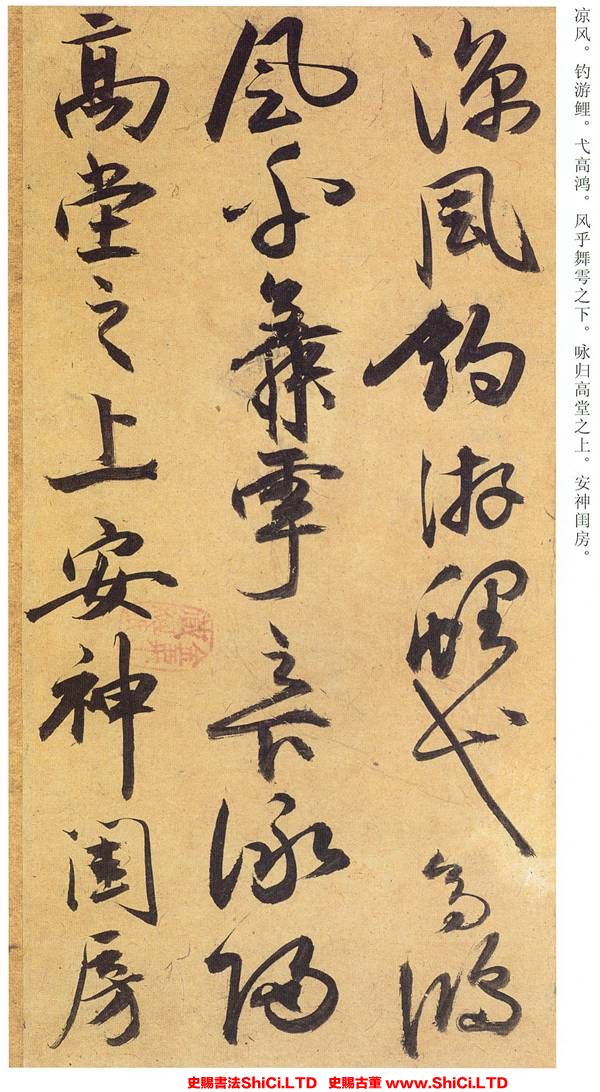 凉风。钓游鲤。弋高鸿。风乎舞雩之下。咏归高堂之上。安神闺房。
凉风钓游鲤弋高鸿
风乎舞雩之下咏归
高堂之上安神闺房
史賜書法ShiCi.LTD 史賜古董 www.ShiCi.LTD